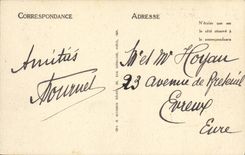 CORRESPONDANCE
ADRESSE
N'écrire que sur
le côté réservé à
la correspondance
Amitiés
Tournel
Mr et Me Hoyau
23 avenue de Breteuil
Evreux
Eure